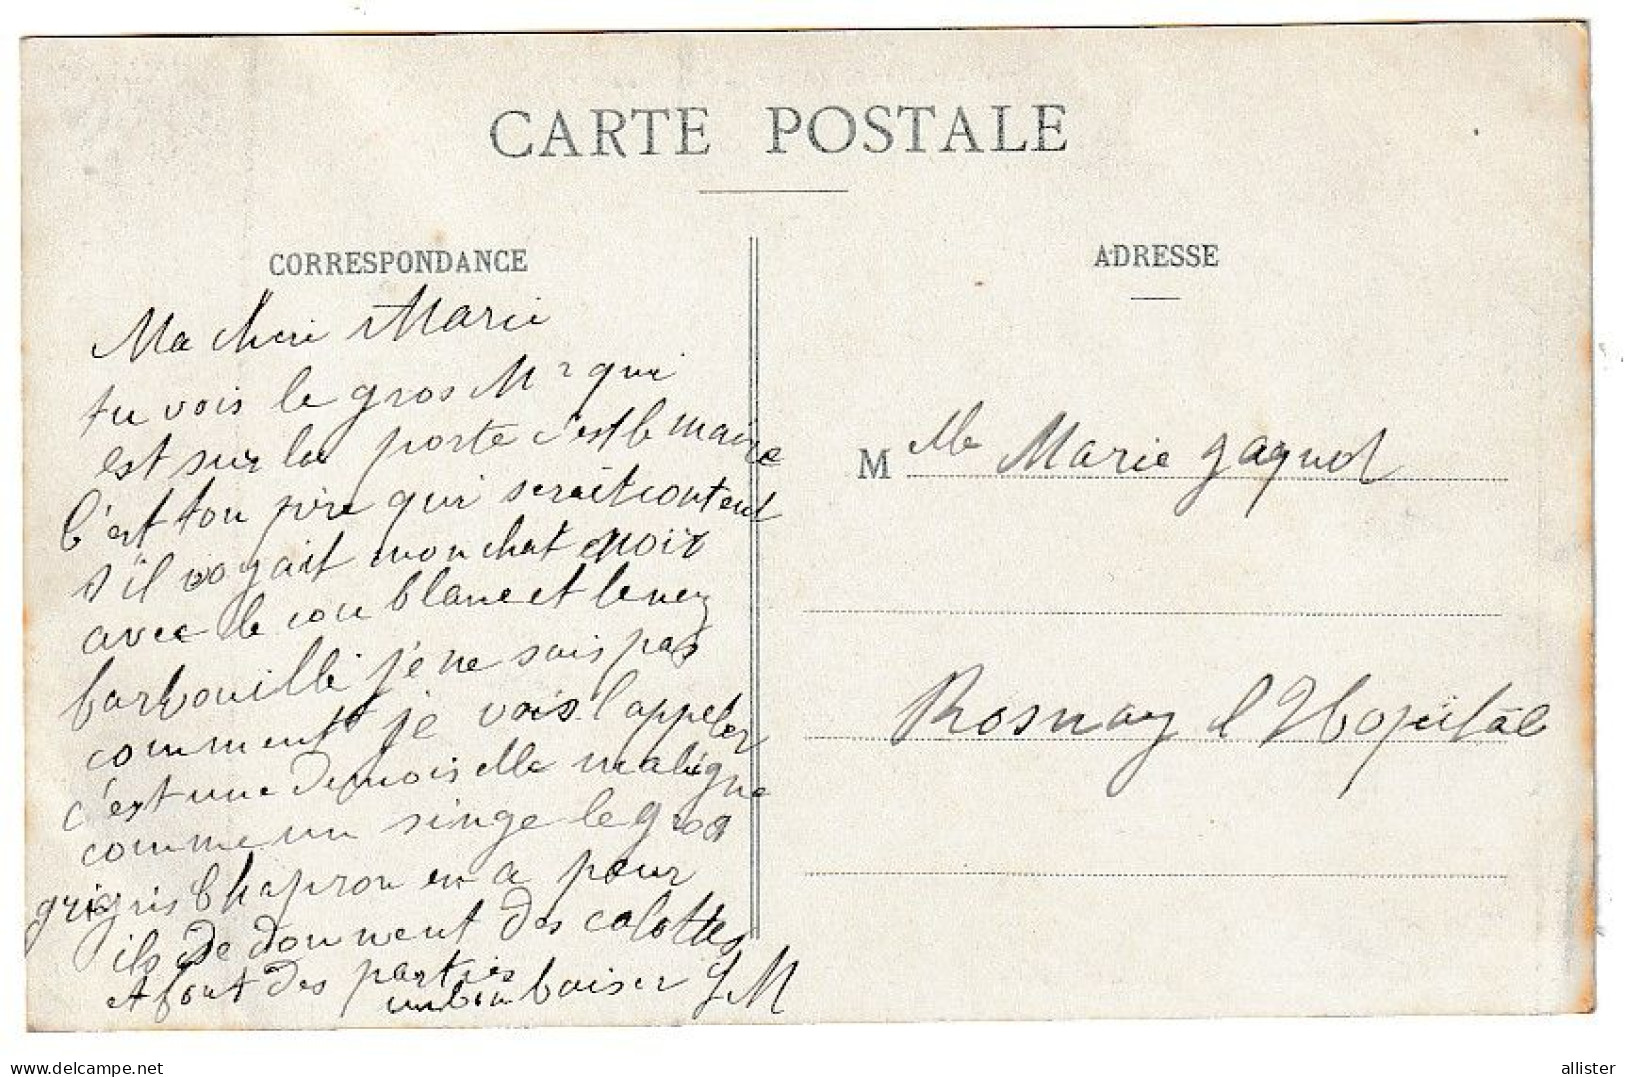 CARTE POSTALE
CORRESPONDANCE
Ma cheri Marie
tu vois le gros Mr qui
est sur la porte c'est le maire
C'est ton père qui serait content
s'il voyait mon chat noir
avec le cou blanc et le nez
barbouillé j'e ne sais pas
comment je vais l'appeler
c'est une demoiselle maligne
comme un singe le gros
grigris Chapron en a peur
ils se donnent des calottes
et font des parties
un bon baiser J M
ADRESSE
M lle Marie Jaquot
Rosnay l'Hopital
allister